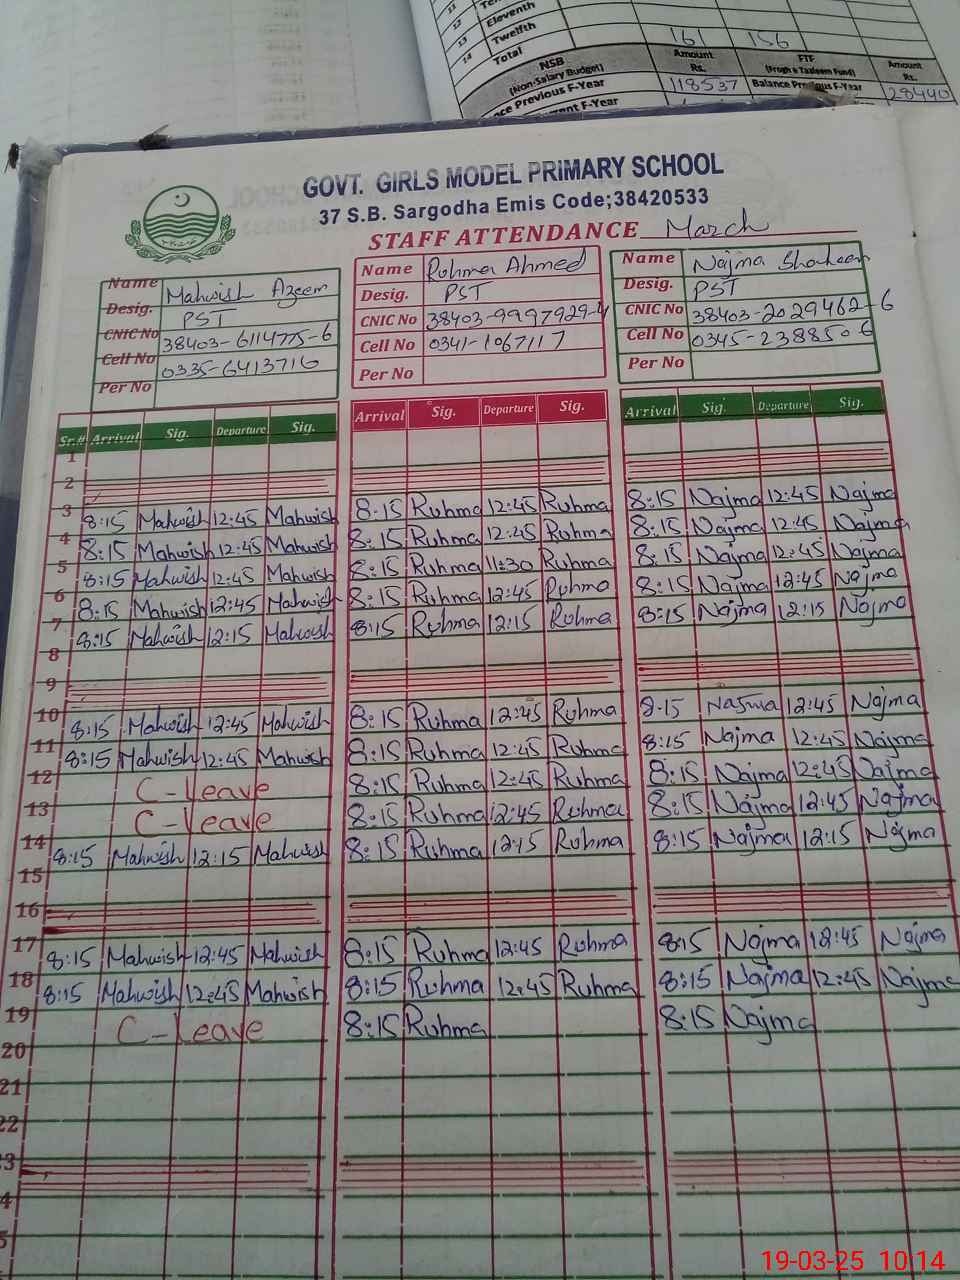 11
12 Eleventh
13 Twelfth 161 156
14 Total
NSB (Non-Salary Budget) Amount Rs. FTF Amount Rs.
Previous F-Year 118537 Balance Previous F-Year 28440
F-Year
GOVT. GIRLS MODEL PRIMARY SCHOOL
37 S.B. Sargodha Emis Code;38420533
STAFF ATTENDANCE March
Name Mahwish Azeem
Desig. PST
CNIC No 38403-6114775-6
Cell No 0335-6413716
Per No
Name Ruhma Ahmed
Desig. PST
CNIC No 38403-9997929-4
Cell No 0341-1067117
Per No
Name Najma Shaheen
Desig. PST
CNIC No 38403-2029462-6
Cell No 0345-2388506
Per No
Sr.# Arrival Sig. Departure Sig. Arrival Sig. Departure Sig. Arrival Sig. Departure Sig.
1
2
3 8:15 Mahwish 12:45 Mahwish 8:15 Ruhma 12:45 Ruhma 8:15 Najma 12:45 Najma
4 8:15 Mahwish 12:45 Mahwish 8:15 Ruhma 12:45 Ruhma 8:15 Najma 12:45 Najma
5 8:15 Mahwish 12:45 Mahwish 8:15 Ruhma 11:30 Ruhma 8:15 Najma 12:45 Najma
6 8:15 Mahwish 12:45 Mahwish 8:15 Ruhma 12:45 Ruhma 8:15 Najma 12:45 Najma
7 8:15 Mahwish 12:15 Mahwish 8:15 Ruhma 12:15 Ruhma 8:15 Najma 12:15 Najma
8
9
10 8:15 Mahwish 12:45 Mahwish 8:15 Ruhma 12:45 Ruhma 8:15 Najma 12:45 Najma
11 8:15 Mahwish 12:45 Mahwish 8:15 Ruhma 12:45 Ruhma 8:15 Najma 12:45 Najma
12 C-Leave 8:15 Ruhma 12:45 Ruhma 8:15 Najma 12:45 Najma
13 C-Leave 8:15 Ruhma 12:45 Ruhma 8:15 Najma 12:45 Najma
14 8:15 Mahwish 12:15 Mahwish 8:15 Ruhma 12:15 Ruhma 8:15 Najma 12:15 Najma
15
16
17 8:15 Mahwish 12:45 Mahwish 8:15 Ruhma 12:45 Ruhma 8:15 Najma 12:45 Najma
18 8:15 Mahwish 12:45 Mahwish 8:15 Ruhma 12:45 Ruhma 8:15 Najma 12:45 Najma
19 C-Leave 8:15 Ruhma 8:15 Najma
20
21
22
3
4
5
19-03-25 10:14